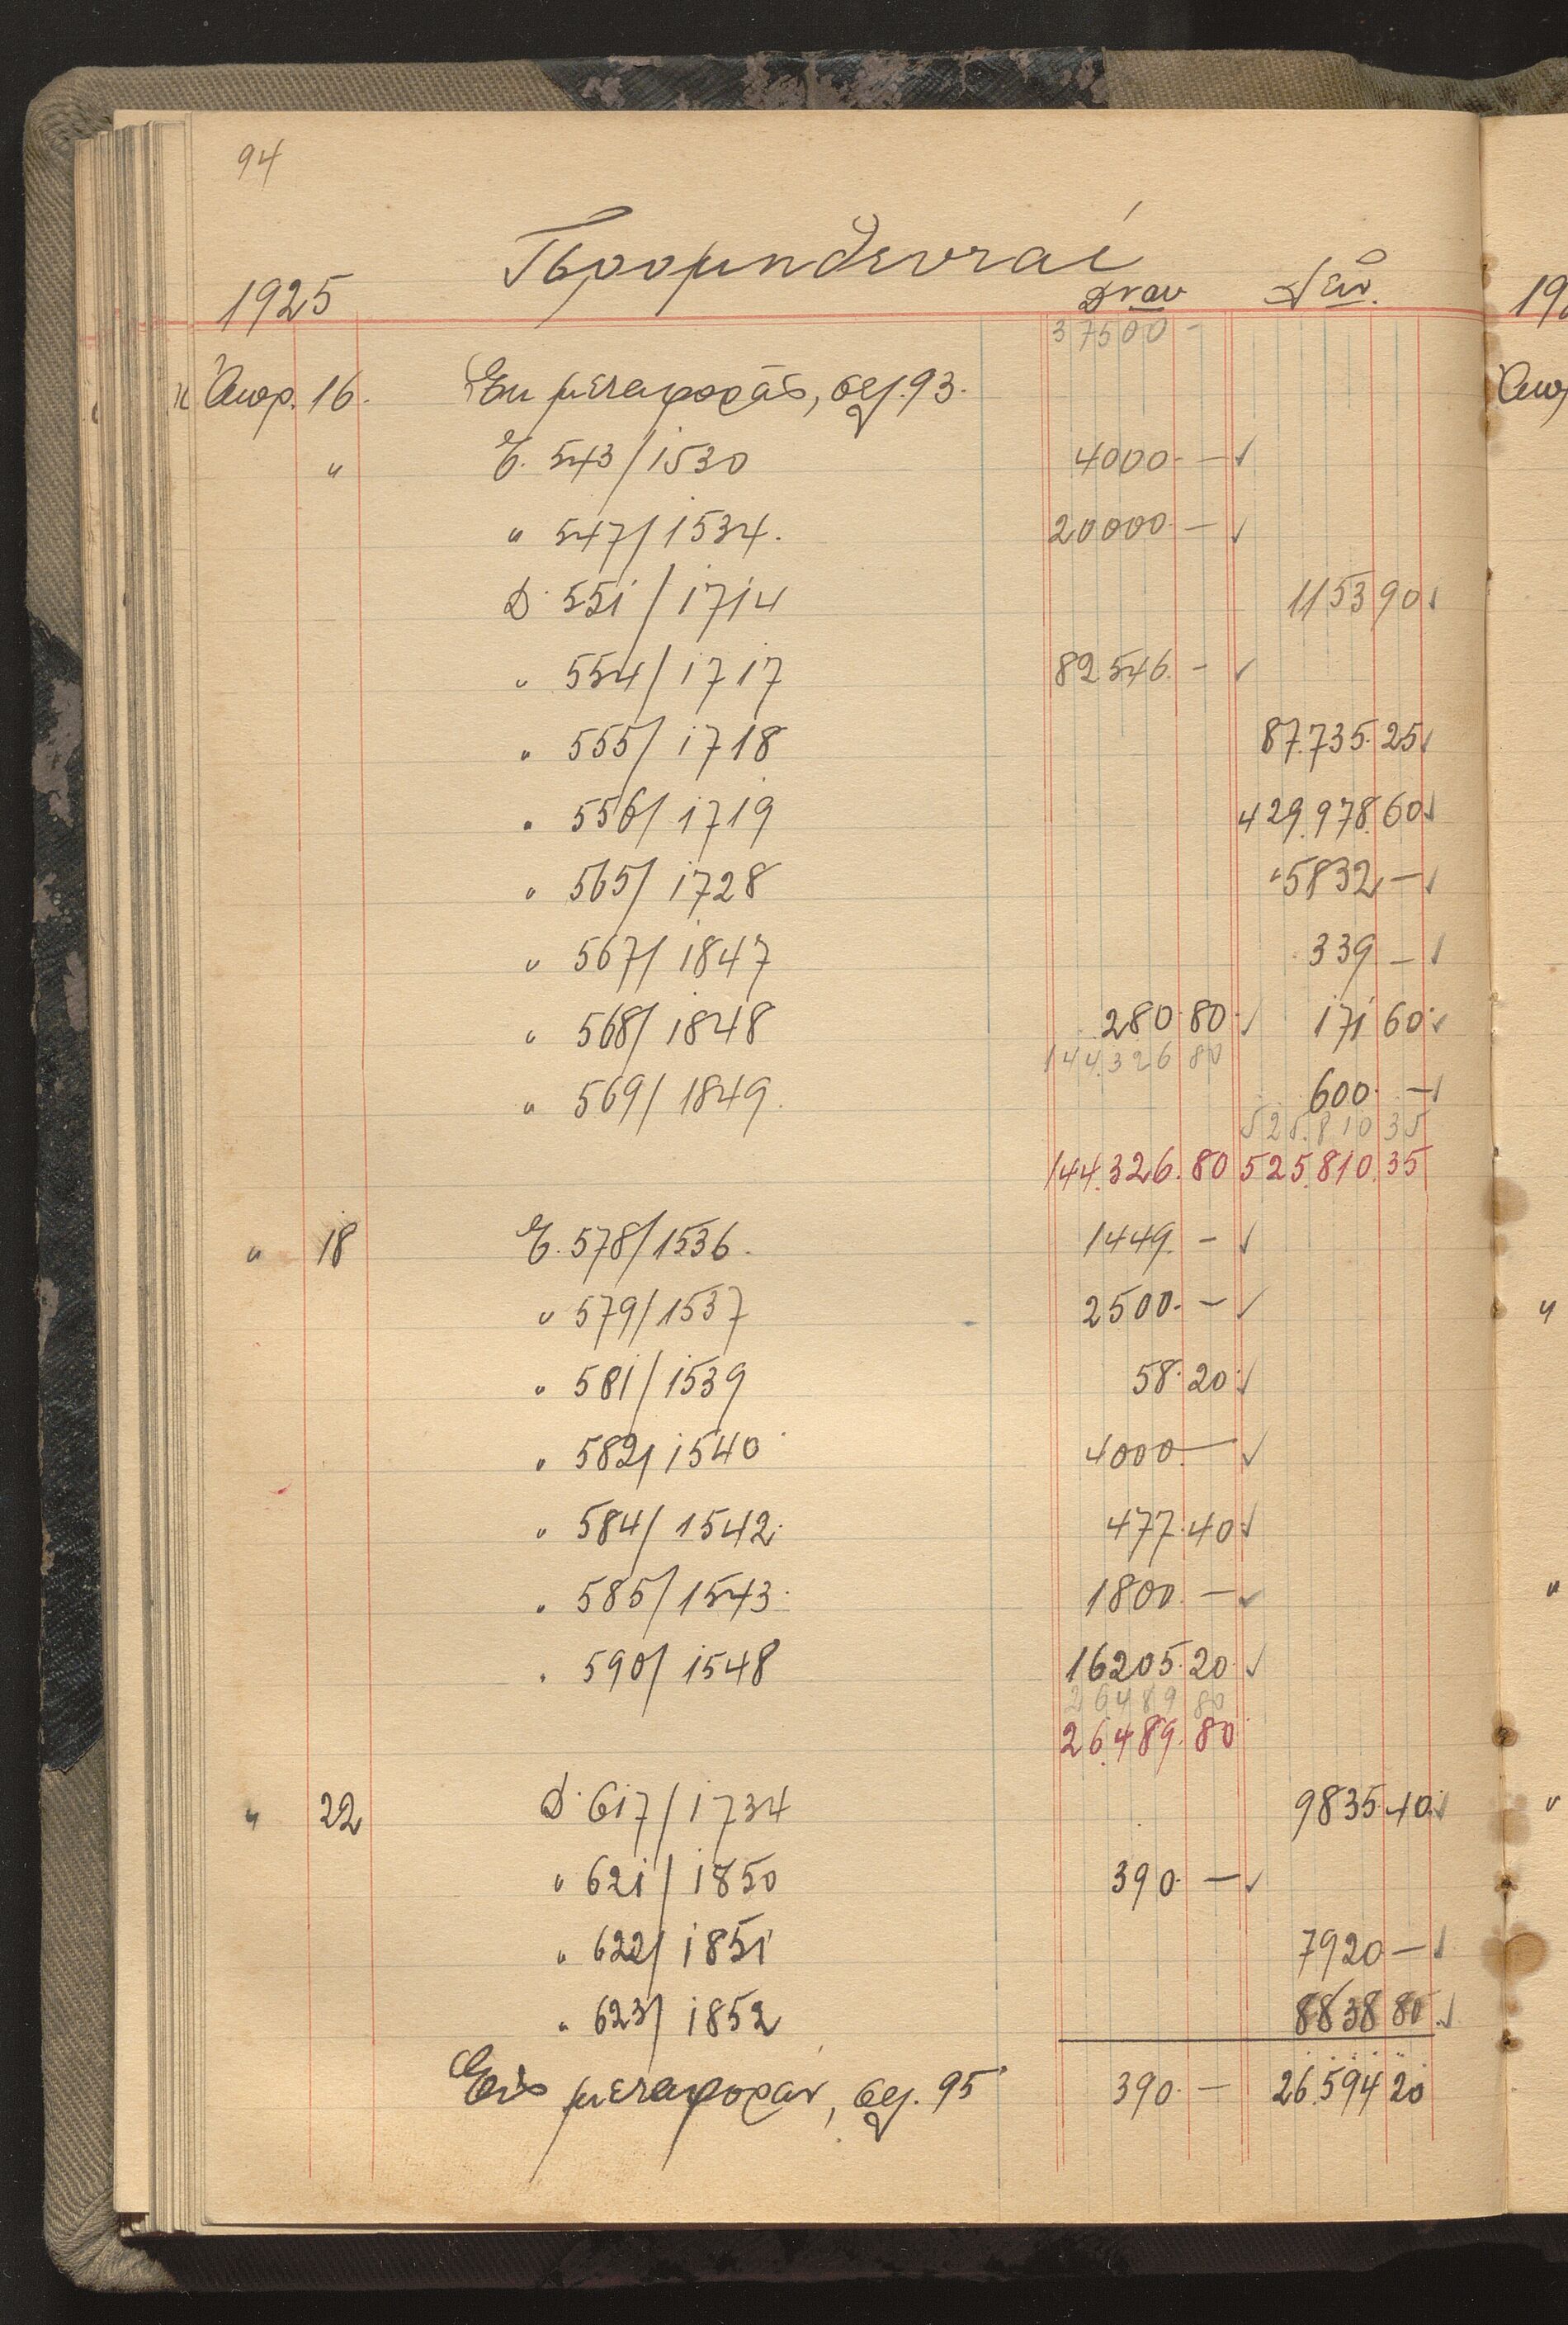 94
Προμηθευταί
1925
37500 -
Ἀπρ. 16. Ἐκ μεταφορᾶς, σελ. 93.
" Ε. 543/1530 4000 - ✓
" 547/1534. 20000 - ✓
Δ. 551/1714 1153 90 ✓
" 554/1717 82546. - ✓
" 555/1718 87.735.25 ✓
" 556/1719 429.978.60 ✓
" 565/1728 5832 - ✓
" 567/1847 339 - ✓
" 568/1848 280.80 ✓ 171 60 ✓
144.326 80
" 569/1849. 600. - ✓
525.810 35
144.326.80 525.810.35
" 18 Ε. 578/1536. 1449. - ✓
" 579/1537 2500. - ✓
" 581/1539 58.20 ✓
" 582/1540 4000. - ✓
" 584/1542. 477.40 ✓
" 585/1543. 1800. - ✓
" 590/1548 16205.20 ✓
26489 80
26.489.80
" 22 Δ. 617/1734 9835 40 ✓
" 621/1850 390. - ✓
" 622/1851 7920 - ✓
" 623/1852 8838 80 ✓
Εἰς μεταφοράν, σελ. 95 390. - 26.594 20
192
Ἀπρ
"
"
"